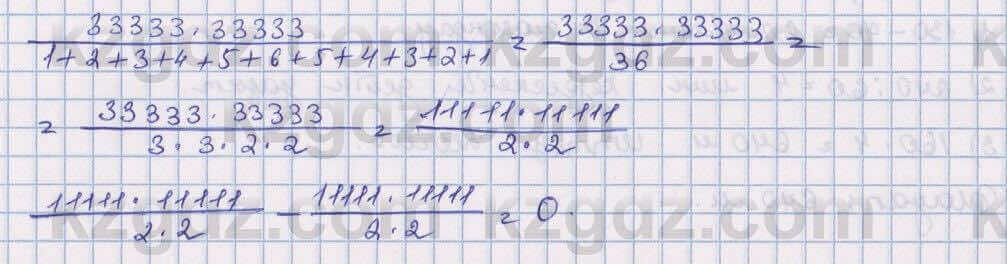 33333 · 33333 / 1+2+3+4+5+6+5+4+3+2+1 = 33333 · 33333 / 36 =
= 33333 · 33333 / 3 · 3 · 2 · 2 = 11111 · 11111 / 2 · 2
11111 · 11111 / 2 · 2 - 11111 · 11111 / 2 · 2 = 0.
kzgdz.com